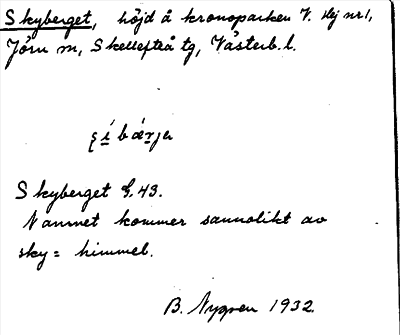 Skyberget, höjd å kronoparken V. Hej nr 1,
Jörn sn, Skellefteå tg, Västerb. l.
Skyberget G. 43.
Namnet kommer sannolikt av
sky = himmel.
B. Nygren 1932.